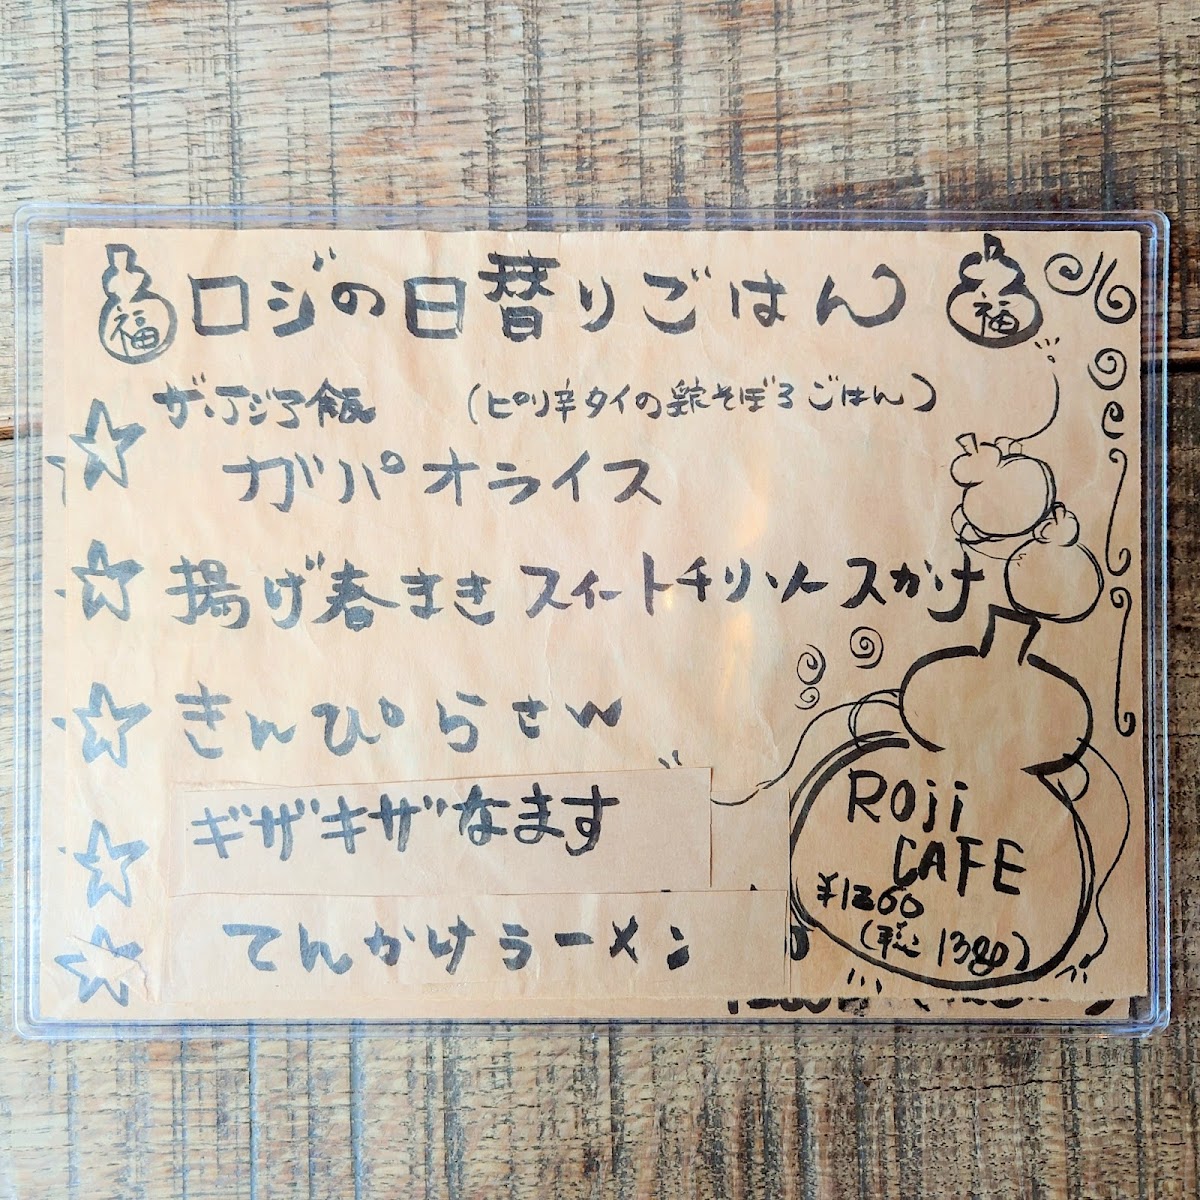 福 ロジの日替りごはん 福
ザ・アジア飯 (ピリ辛タイの鶏そぼろごはん)
ガパオライス
揚げ春まき スイートチリソースがけ
きんぴらさん
ギザギザなます
てんかけラーメン
ROji
CAFE
¥1260
(税込1380)